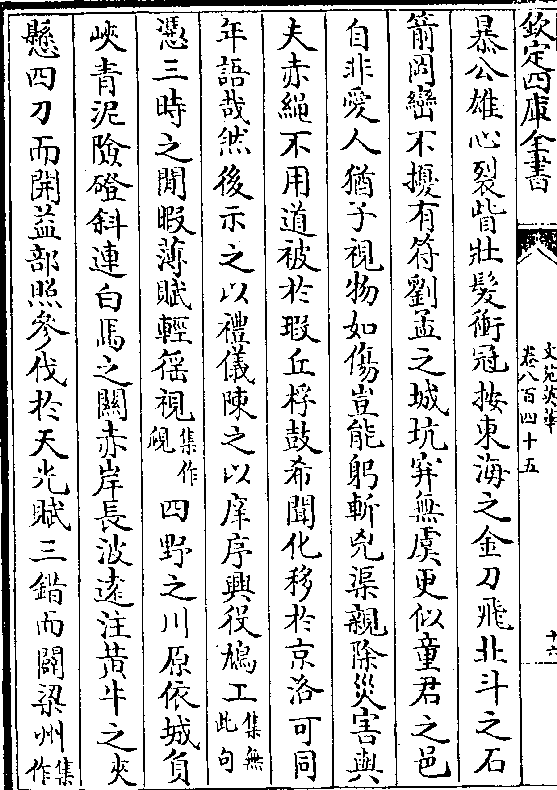 欽定四庫全書
文苑英華
卷八百四十五
十六
暴公雄心裂眥壯髮衝冠按東海之金刀飛北斗之石
箭岡巒不擾有符劉孟之城坑穽無虞更似童君之邑
自非愛人猶子視物如傷豈能躬斬兇渠親除災害與
夫赤繩不用道被於瑕丘桴鼓希聞化移於京洛可同
年語哉然後示之以禮儀陳之以庠序興役鳩工集無此句
憑三時之閒暇薄賦輕徭視集作硯四野之川原依城負
峽青泥險磴斜連白馬之關赤岸長波遠注黄牛之夾
懸四刀而開益部照參伐於天光賦三錯而闢梁州集作